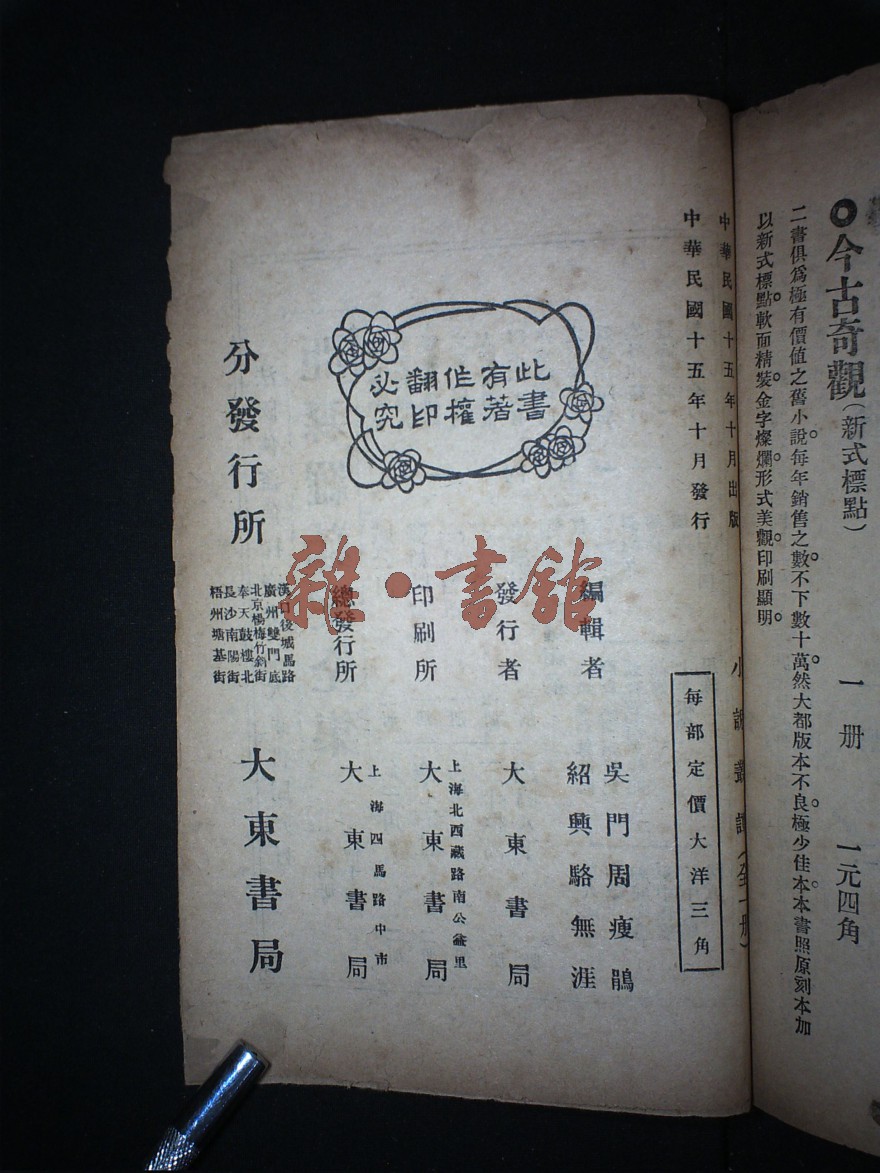 ◉今古奇觀(新式標點) 一册 一元四角
二書俱爲極有價值之舊小說。每年銷售之數。不下數十萬。然大都版本不良。極少佳本。本書照原刻本加
以新式標點。軟面精裝。金字燦爛。形式美觀。印刷顯明。
中華民國十五年十月出版
中華民國十五年十月發行
小說叢譚(全一册)
每部定價大洋三角
此書
有著
作權
翻印
必究
編輯者
吳門周瘦鵑
紹興駱無涯
發行者
大東書局
印刷所
上海北西藏路南公益里
大東書局
總發行所
上海四馬路中市
大東書局
分發行所
漢口後城馬路
廣州雙門底
北京楊梅竹斜街
奉天鼓樓北
長沙南陽街
梧州塘基街
大東書局
雜·書館